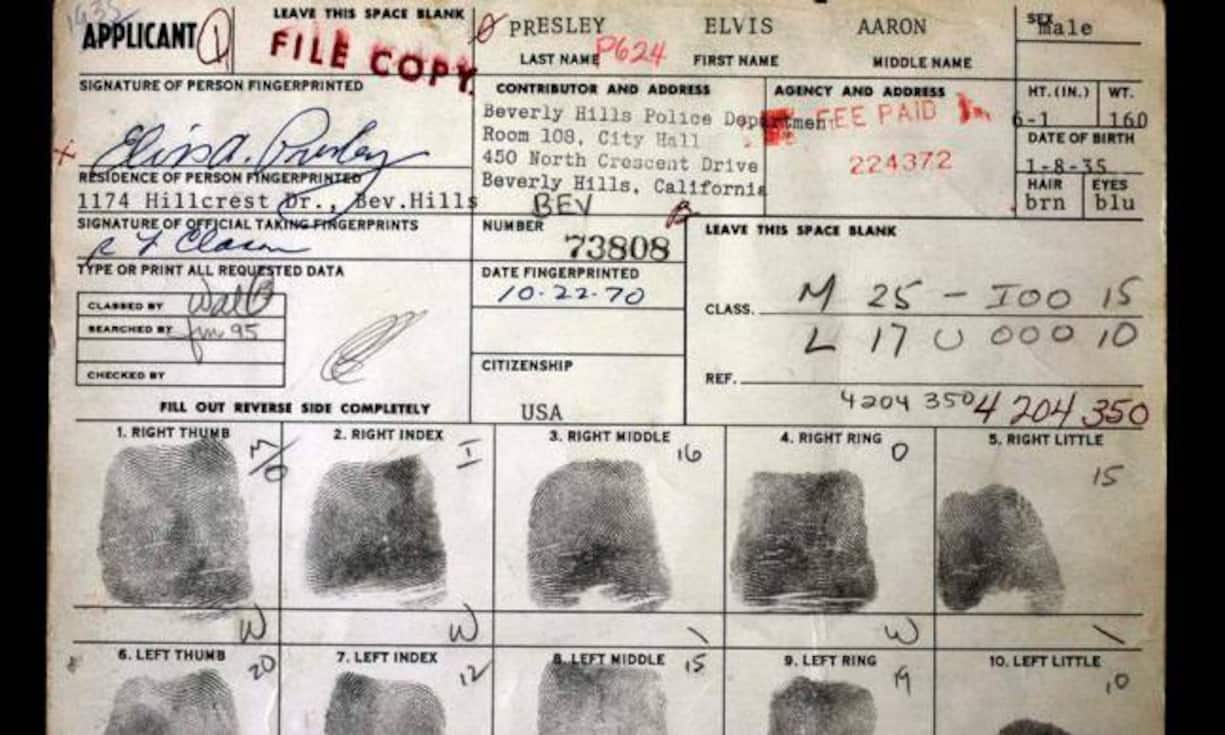 APPLICANT 1
LEAVE THIS SPACE BLANK
FILE COPY
PRESLEY ELVIS AARON
LAST NAME P624 FIRST NAME MIDDLE NAME
SEX
Male
SIGNATURE OF PERSON FINGERPRINTED
Elvis A. Presley
CONTRIBUTOR AND ADDRESS
Beverly Hills Police Department
Room 108, City Hall
450 North Crescent Drive
Beverly Hills, California
BEV
AGENCY AND ADDRESS
FEE PAID
224372
HT. (IN.) WT.
6-1 160
DATE OF BIRTH
1-8-35
HAIR EYES
brn blu
RESIDENCE OF PERSON FINGERPRINTED
1174 Hillcrest Dr., Bev.Hills
SIGNATURE OF OFFICIAL TAKING FINGERPRINTS
TYPE OR PRINT ALL REQUESTED DATA
CLASSED BY
SEARCHED BY 95
CHECKED BY
NUMBER
73808
DATE FINGERPRINTED
10-22-70
CITIZENSHIP
USA
LEAVE THIS SPACE BLANK
CLASS. M 25 - IOO 15
L 17 U 000 10
REF.
4204 350 4 204 350
FILL OUT REVERSE SIDE COMPLETELY
1. RIGHT THUMB 2. RIGHT INDEX I 3. RIGHT MIDDLE 16 4. RIGHT RING O 5. RIGHT LITTLE 15
W W \ W \
6. LEFT THUMB 20 7. LEFT INDEX 12 8. LEFT MIDDLE 15 9. LEFT RING 19 10. LEFT LITTLE 10